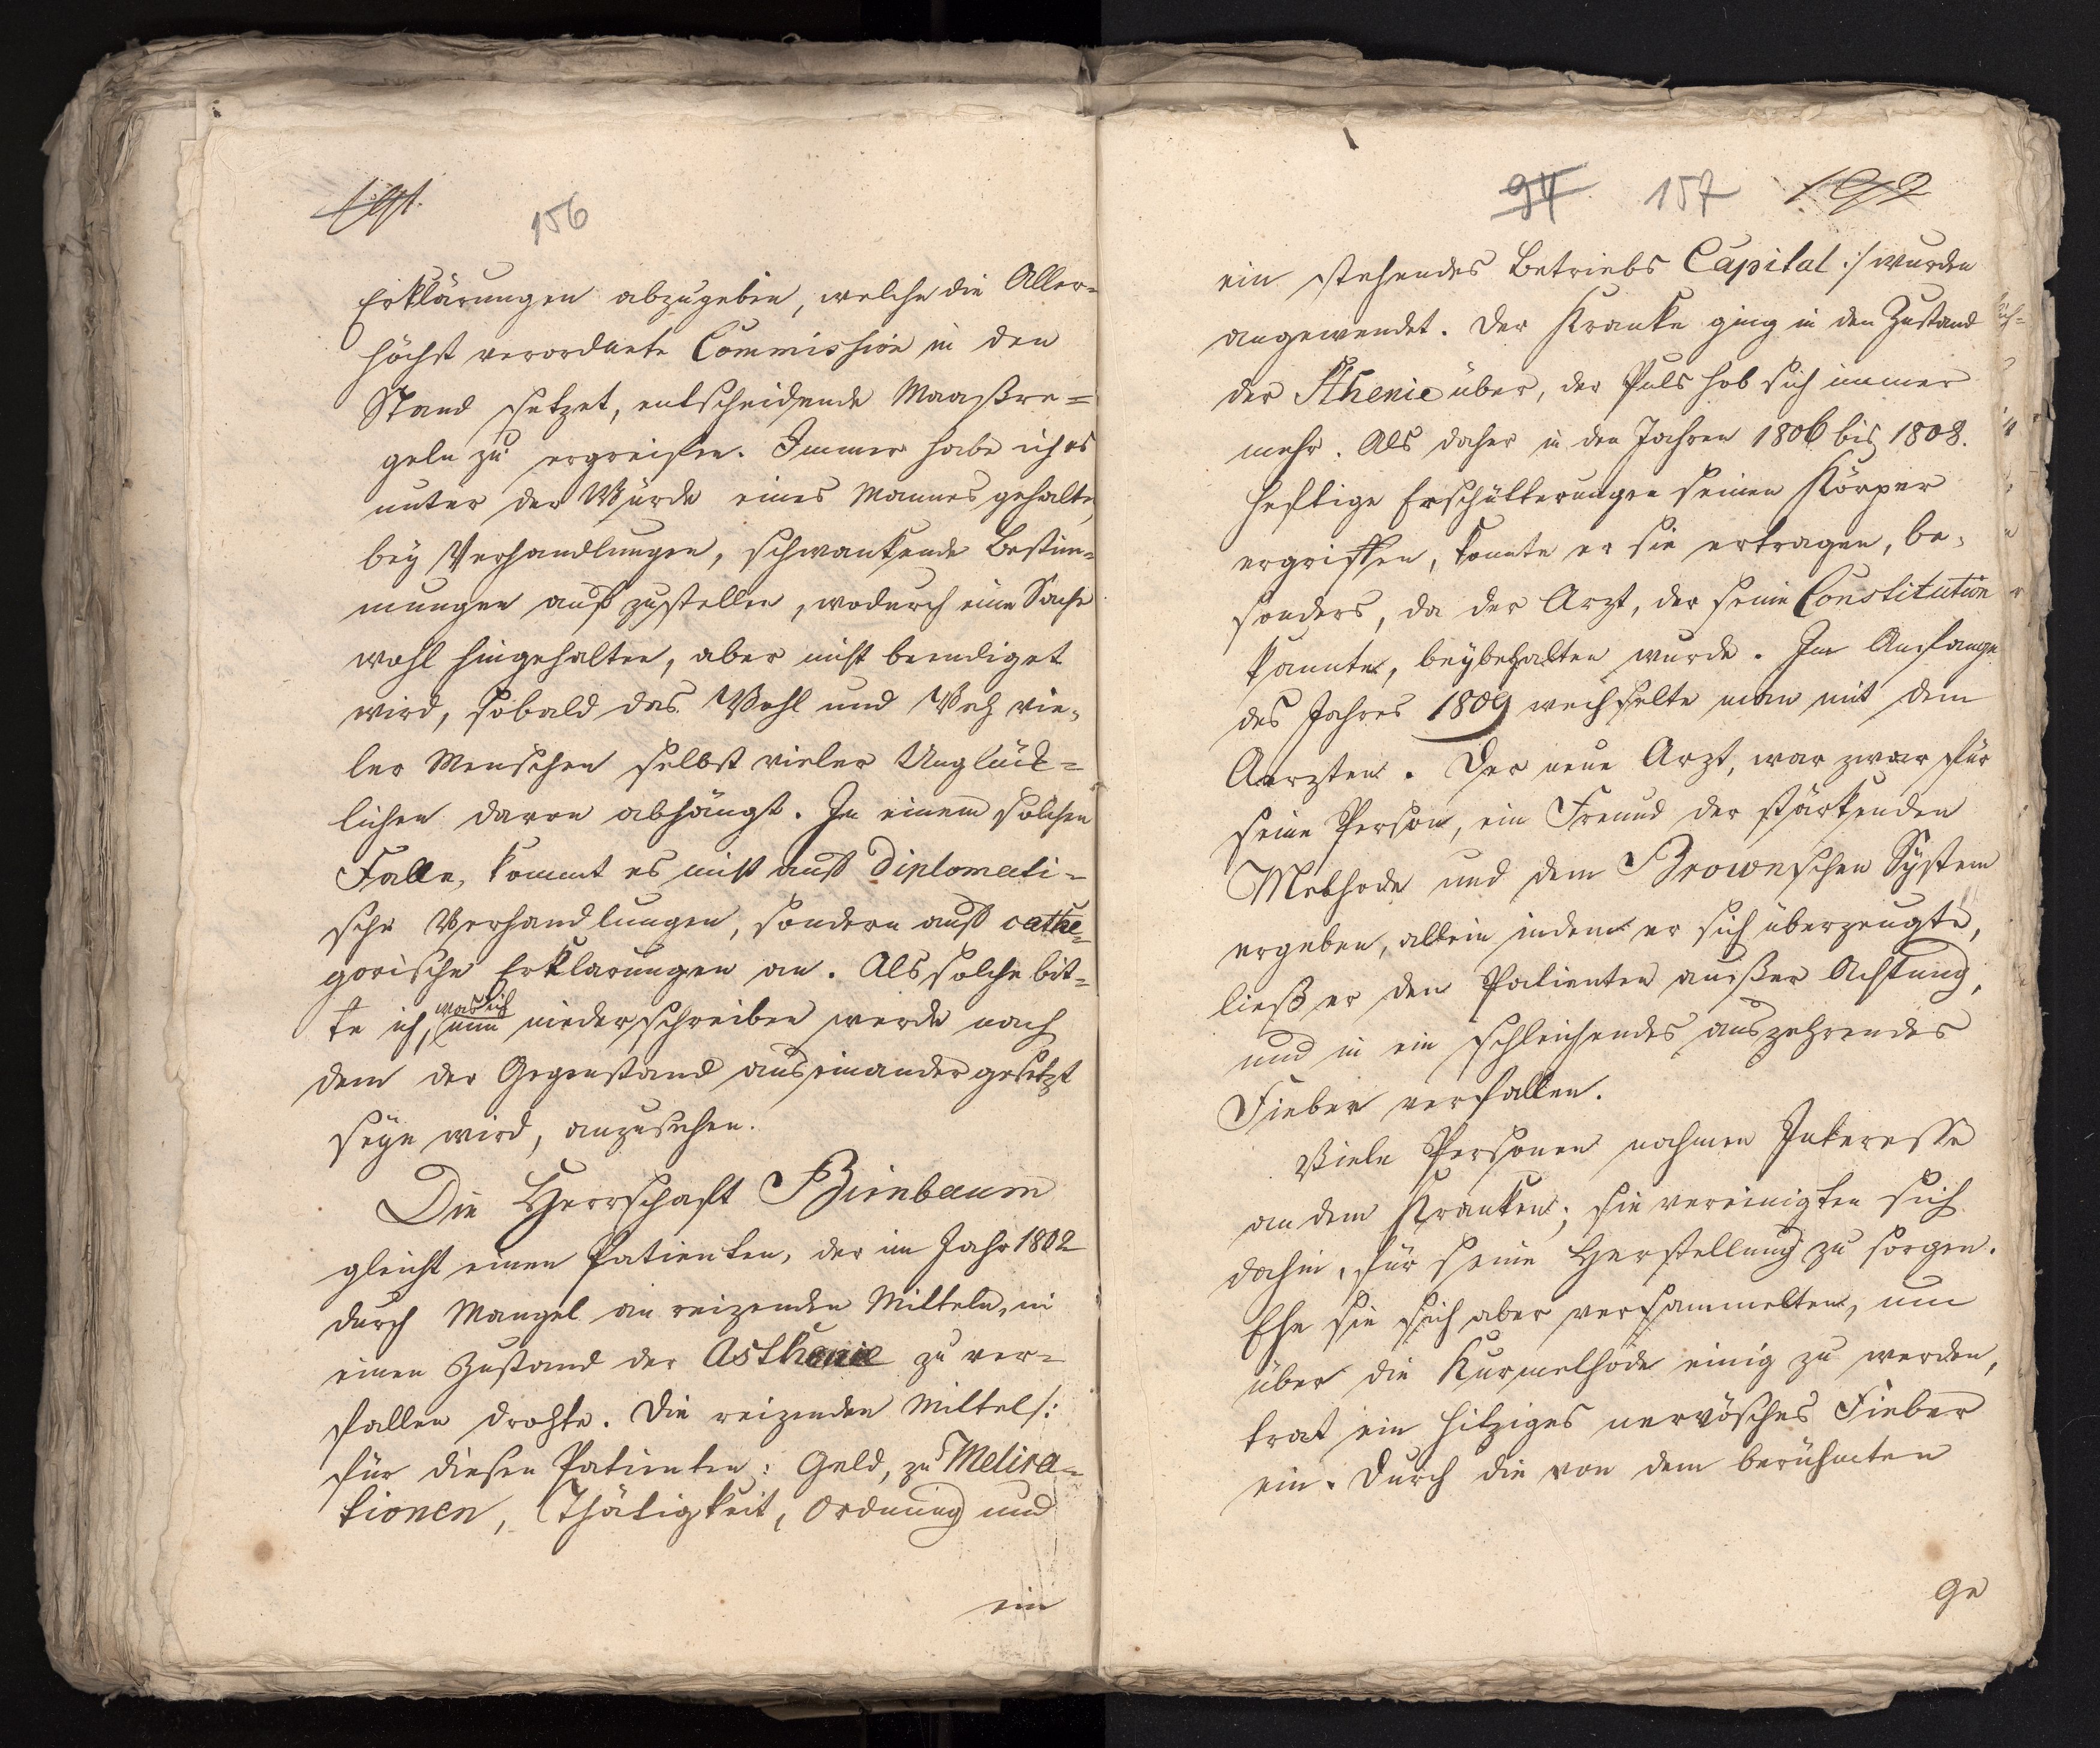 156
Erklärungen abzugeben, welche die Aller=
höchst verordnete Commission in den
Stand setzet, entscheidende Maaßre=
geln zu ergreifen. Immer habe ich es
unter der Würde eines Mannes gehalten
bey Verhandlungen, schwankende Bestim=
mungen aufzustellen, wodurch eine Sache
wohl hingehalten, aber nicht beendiget
wird, sobald das Wohl und Weh vie=
ler Menschen selbst vieler Unglück=
lichen davon abhängt. In einem solchen
Falle, kommt es nicht auf diplomati=
sche Verhandlungen, sondern auf cathe=
gorische Erklarungen an. Als solche bit=
te ich, was ich nun niederschreiben werde nach
dem der Gegenstand auseinander gesetzt
seyn wird, anzusehen.
Die Herrschaft Birnbaum
gleicht einen Patienten, der im Jahr 1802
durch Mangel an reizenden Mitteln, in
einen Zustand der Asthenie zu ver=
fallen drohte. Die reizenden Mittel /:
für diesen Patienten: Geld, zu Melira=
tionen, Thätigkeit, Ordnung und
ein
94 157
ein stehendes Betriebs Capital :/ wurden
angewendet. Der Kranke ging in den Zustand
der Sthenie über, der Puls hob sich immer
mehr. Als daher in den Jahren 1806 bis 1808.
heftige Erschütterungen seinen Körper
ergriffen, konnte er sie ertragen, be=
sonders, da der Arzt, der seine Constitution
kannte, beybehalten wurde. Im Anfange
des Jahres 1809 wechselte man mit dem
Aerzten. Der neue Arzt, war zwar für
seine Person, ein Freund der stärkenden
Methode und dem Brownschen System
ergeben, allein indem er sich überzeugte,
ließ er den Patienten außer Achtung,
und in ein schleichendes auszehrendes
Fieber verfallen.
Viele Personen nahmen Interesse
an dem Kranken; sie vereinigten sich
dahin, für seine Herstellung zu sorgen.
Ehe sie sich aber versammelten, um
über die Kurmethode einig zu werden,
trat ein hitziges nervöses Fieber
ein. Durch die von dem berühmten
ge